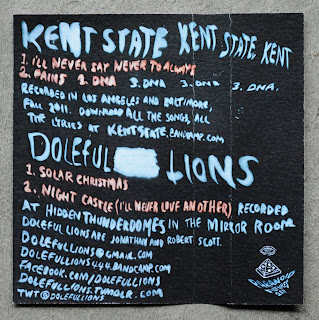 KENT STATE KENT STATE, KENT
1. I'LL NEVER SAY NEVER TO ALWAYS
2. PAINS 2. DNA 3. DNA 3. DNA 3. DNA,
RECORDED IN LOS ANGELES AND BALTIMORE,
FALL 2011. DOWNLOAD ALL THE SONGS, ALL
THE LYRICS AT KENTSTATE.BANDCAMP.COM
DOLEFUL LIONS
1. SOLAR CHRISTMAS
2. NIGHT CASTLE (I'LL NEVER LOVE ANOTHER) RECORDED
AT HIDDEN THUNDERDOMES IN THE MIRROR ROOM
DOLEFUL LIONS ARE JONATHAN AND ROBERT SCOTT.
DOLEFULLIONS@GMAIL.COM
DOLEFULLIONS444.BANDCAMP.COM
FACEBOOK.COM/DOLEFULLIONS
DOLEFULLIONS.TUMBLR.COM
TWT@DOLEFULLIONS